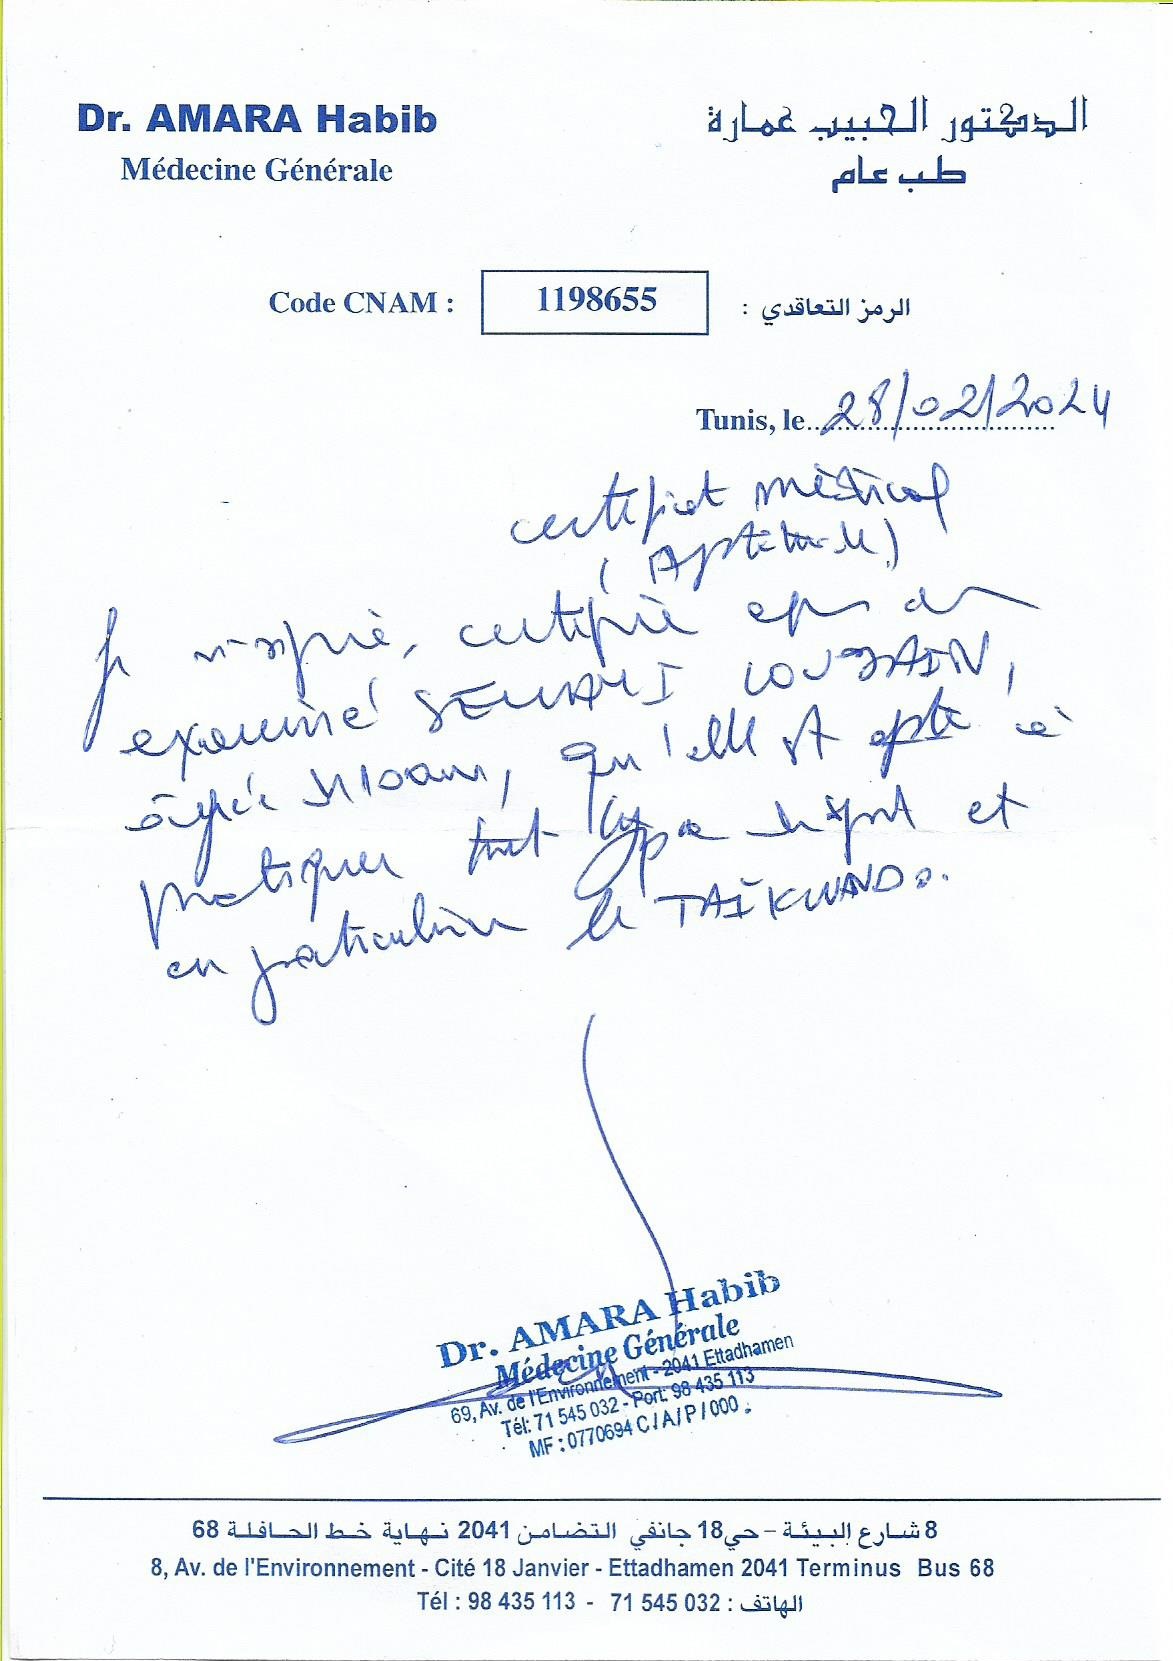 Dr. AMARA Habib
الدكتور الحبيب عمارة
Médecine Générale
طب عام
Code CNAM : 1198655 الرمز التعاقدي :
Tunis, le 28/02/2024
certificat médical
(Aptitude)
Je soussigné, certifie
examiné LOUJAIN,
âgée, qu'elle est apte à
pratiquer tout type de sport et
en particulier le TAÏKWANDO.
Dr. AMARA Habib
Médecine Générale
69, Av. de l'Environnement - 2041 Ettadhamen
Tél: 71 545 032 - Port: 98 435 113
MF : 0770694 C/A/P/000.
8 شارع البيئة - حي 18 جانفي التضامن 2041 نهاية خط الحافلة 68
8, Av. de l'Environnement - Cité 18 Janvier - Ettadhamen 2041 Terminus Bus 68
Tél : 98 435 113 - 71 545 032 : الهاتف